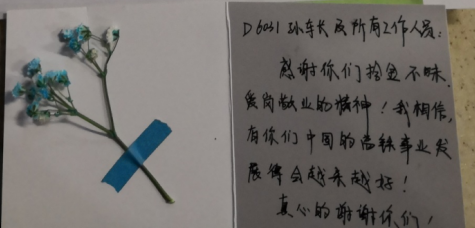 D6031孙车长及所有工作人员:
感谢你们拾金不昧、
爱岗敬业的精神!我相信,
有你们中国的高铁事业发
展得会越来越好!
真心的谢谢你们!